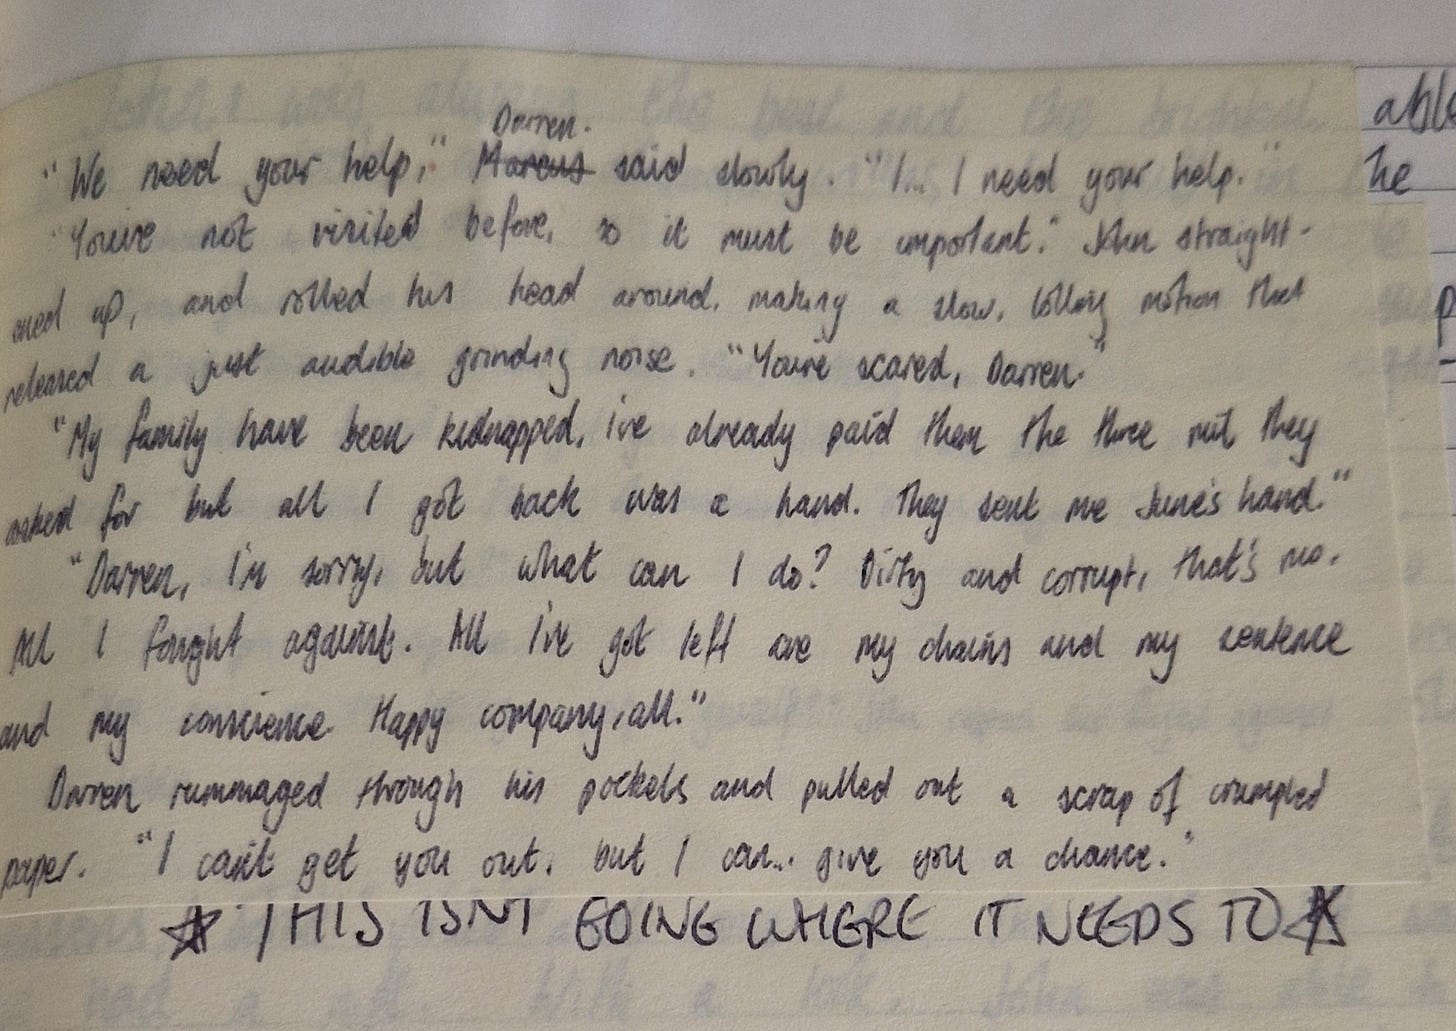 Darren.
"We need your help," Marcus said slowly. "I... I need your help."
"You've not visited before, so it must be important." John straight-
ened up, and rolled his head around, making a slow, lolling motion that
released a just audible grinding noise. "You're scared, Darren."
"My family have been kidnapped, i've already paid them the three mil they
asked for but all I got back was a hand. They sent me June's hand."
"Darren, I'm sorry, but what can I do? Dirty and corrupt, that's me.
All I fought against. All I've got left are my chains and my sentence
and my conscience. Happy company, all."
Darren rummaged through his pockets and pulled out a scrap of crumpled
paper. "I can't get you out, but I can... give you a chance."
☆ THIS ISNT GOING WHERE IT NEEDS TO ☆
able
he